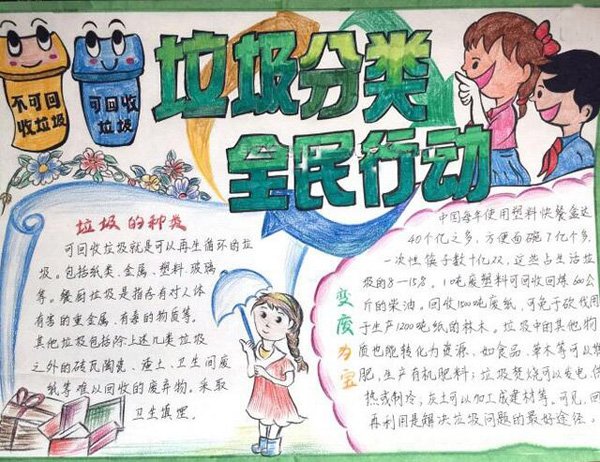 垃圾分类
全民行动
不可回
收垃圾
可回收
垃圾
垃圾的种类
可回收垃圾就是可以再生循环的垃
圾。包括纸类、金属、塑料、玻璃
等。餐厨垃圾是指存有对人体
有害的重金属、有毒的物质等。
其他垃圾包括除上述几类垃圾
之外的砖瓦陶瓷、渣土、卫生间废
纸等难以回收的废弃物。采取
卫生填埋。
变废为宝
中国每年使用塑料快餐盒达
40个亿之多,方便面碗7亿个多,
一次性筷子数十亿双,这些占生活垃
圾的8-15%。1吨废塑料可回收回炼600公
斤的柴油。回收1500吨废纸,可免于砍伐用
于生产1200吨纸的林木。垃圾中的其他物
质也能转化为资源,如食品、草木等可以堆
肥,生产有机肥料;垃圾焚烧可以发电、供
热或制冷;灰土可以加工成建材等。可见,回
再利用是解决垃圾问题的最好途径。